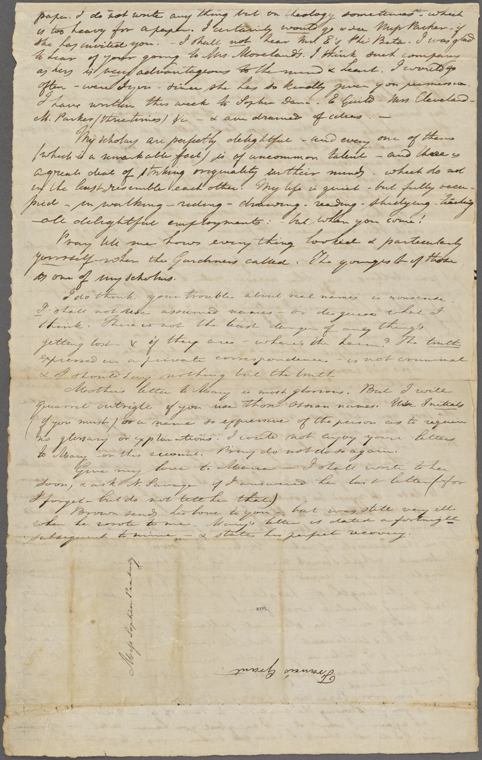 paper. I do not write any thing but on theology sometimes - which
is too heavy for a paper. I certainly would go & see Miss Parker if
she has invited you. - I shall not hear Mr E's Phi Beta. I was glad
to hear of your going to Mrs Morelands. I think such company
as hers is very advantageous to the mind & heart. I would go
often - were I you - since she has so kindly given you permission.
I have written this week to Sophia Dana. E Guild - Mrs Cleveland -
M. Parker, (strictures) &c - & am drained of ideas -
My scholars are perfectly delightful - and every one of them
(which is a remarkable fact) is of uncommon talent - and there is
a great deal of striking originality in their minds which do not
in the least resemble each other. My life is quiet - but fully occu-
pied - in walking - riding - drawing - reading - studying - teaching
- all delightful employments: but when you come!
Pray tell me how everything looked & particularly
yourself when the Gardiners called. The youngest of those
is one of my scholars.
I do think your trouble about real names is nonsense.
I shall not use assumed names - or disguise what I
think. There is not the least danger of any thing's
getting lost & if they are - where's the harm? The truth
expressed in a private correspondence - is not criminal
& I should say nothing but the truth.
Mother's letter to Mary is most glorious. But I will
quarrel outright if you use those names. Use Initials
(if you must) or a name so expressive of the person as to require
no glossary or explanations. I could not enjoy your letters
to Mary on this account. Pray do not do so again.
Give my love to - I shall write to her
soon, & ask A Savage if I answered her last letter (for
I forget - but do not tell her that)
Brown sends her love to you - but was still very ill
when he wrote to me. Mary's letter is dated a fortnight
subsequent to mine - & states his perfect recovery.
Miss Sophia Peabody
Francis Graut